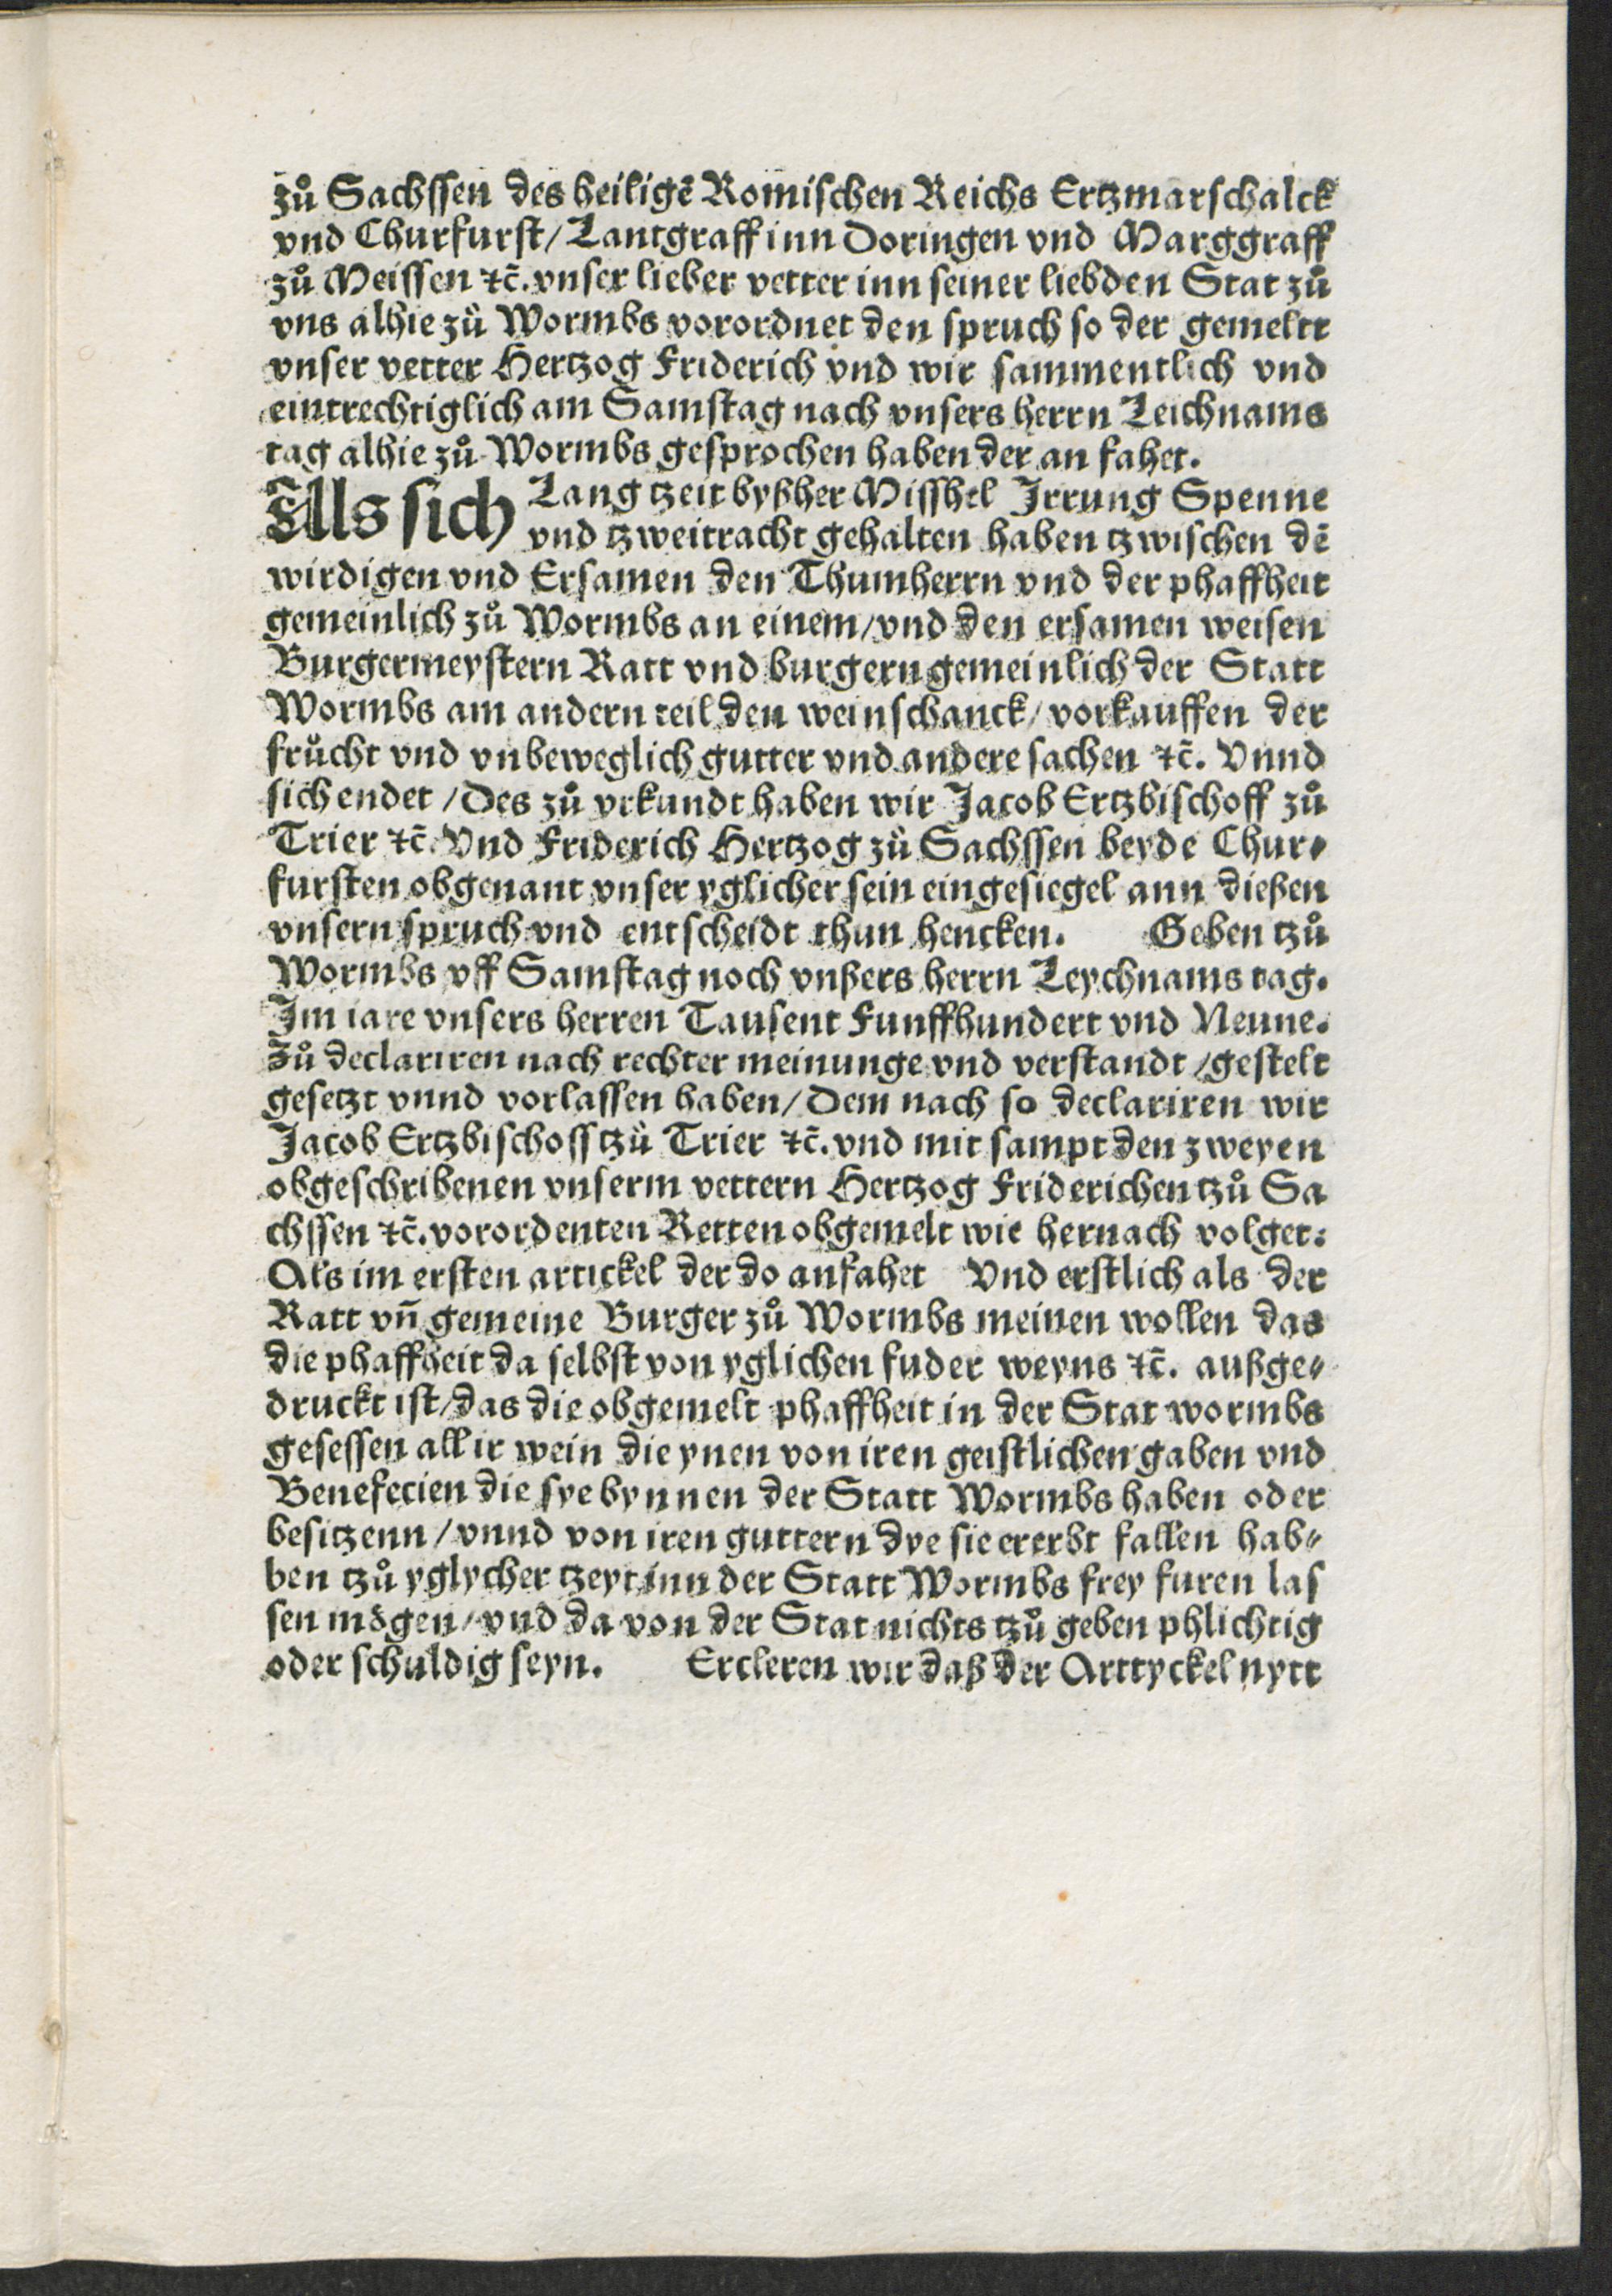 zů Sachssen des heiligē Romischen Reichs Ertzmarschalck
vnd Churfurst/ Lantgraff inn Doringen vnd Marggraff
zů Meissen ⁊c̃. vnser lieber vetter inn seiner liebden Stat zů
vns alhie zů Wormbs vorordnet den spruch so der gemeltt
vnser vetter Hertzog Friderich vnd wir sammentlich vnd
eintrechtiglich am Samstag nach vnsers herrn Leichnams
tag alhie zů Wormbs gesprochen haben der an fahet.
Als sich Lang tzeit byßher Misshel Jrrung Spenne
vnd tzweitracht gehalten haben tzwischen dē
wirdigen vnd Ersamen den Thumherrn vnd der phaffheit
gemeinlich zů Wormbs an einem/ vnd den ersamen weisen
Burgermeystern Ratt vnd burgern gemeinlich der Statt
Wormbs am andern teil den weinschanck/ vorkauffen der
frůcht vnd vnbeweglich gutter vnd andere sachen ⁊c̃. Vnnd
sich endet /Des zů vrkundt haben wir Jacob Ertzbischoff zů
Trier ⁊c̃. Vnd Friderich Hertzog zů Sachssen beyde Chur⸗
fursten obgenant vnser yglicher sein eingesiegel ann dießen
vnsern spruch vnd entscheidt thun hencken. Geben tzů
Wormbs vff Samstag noch vnßers herrn Leychnams tag.
Jm iare vnsers herren Tausent Funffhundert vnd Neune.
Zů declariren nach rechter meinunge vnd verstandt /gestelt
gesetzt vnnd vorlassen haben/ Dem nach so declariren wir
Jacob Ertzbischoff tzů Trier ⁊c̃. vnd mit sampt den zweyen
obgeschribenen vnserm vettern Hertzog Friderichen tzů Sa
chssen ⁊c̃. vorordenten Retten obgemelt wie hernach volget:
Als im ersten artickel der do anfahet Vnd erstlich als der
Ratt vn̄ gemeine Burger zů Wormbs meinen wollen das
die phaffheit da selbst von yglichen fuder weyns ⁊c̃. außge⸗
druckt ist/ das die obgemelt phaffheit in der Stat wormbs
gesessen all ir wein die ynen von iren geistlichen gaben vnd
Benefecien die sye bynnen der Statt Wormbs haben oder
besitzenn/ vnnd von iren guttern dye sie ererbt fallen hab⸗
ben tzů yglycher tzeyt inn der Statt Wormbs frey furen las
sen mögen/ vnd da von der Stat nichts tzů geben phlichtig
oder schuldig seyn. Ercleren wir daß der Arttyckel nytt